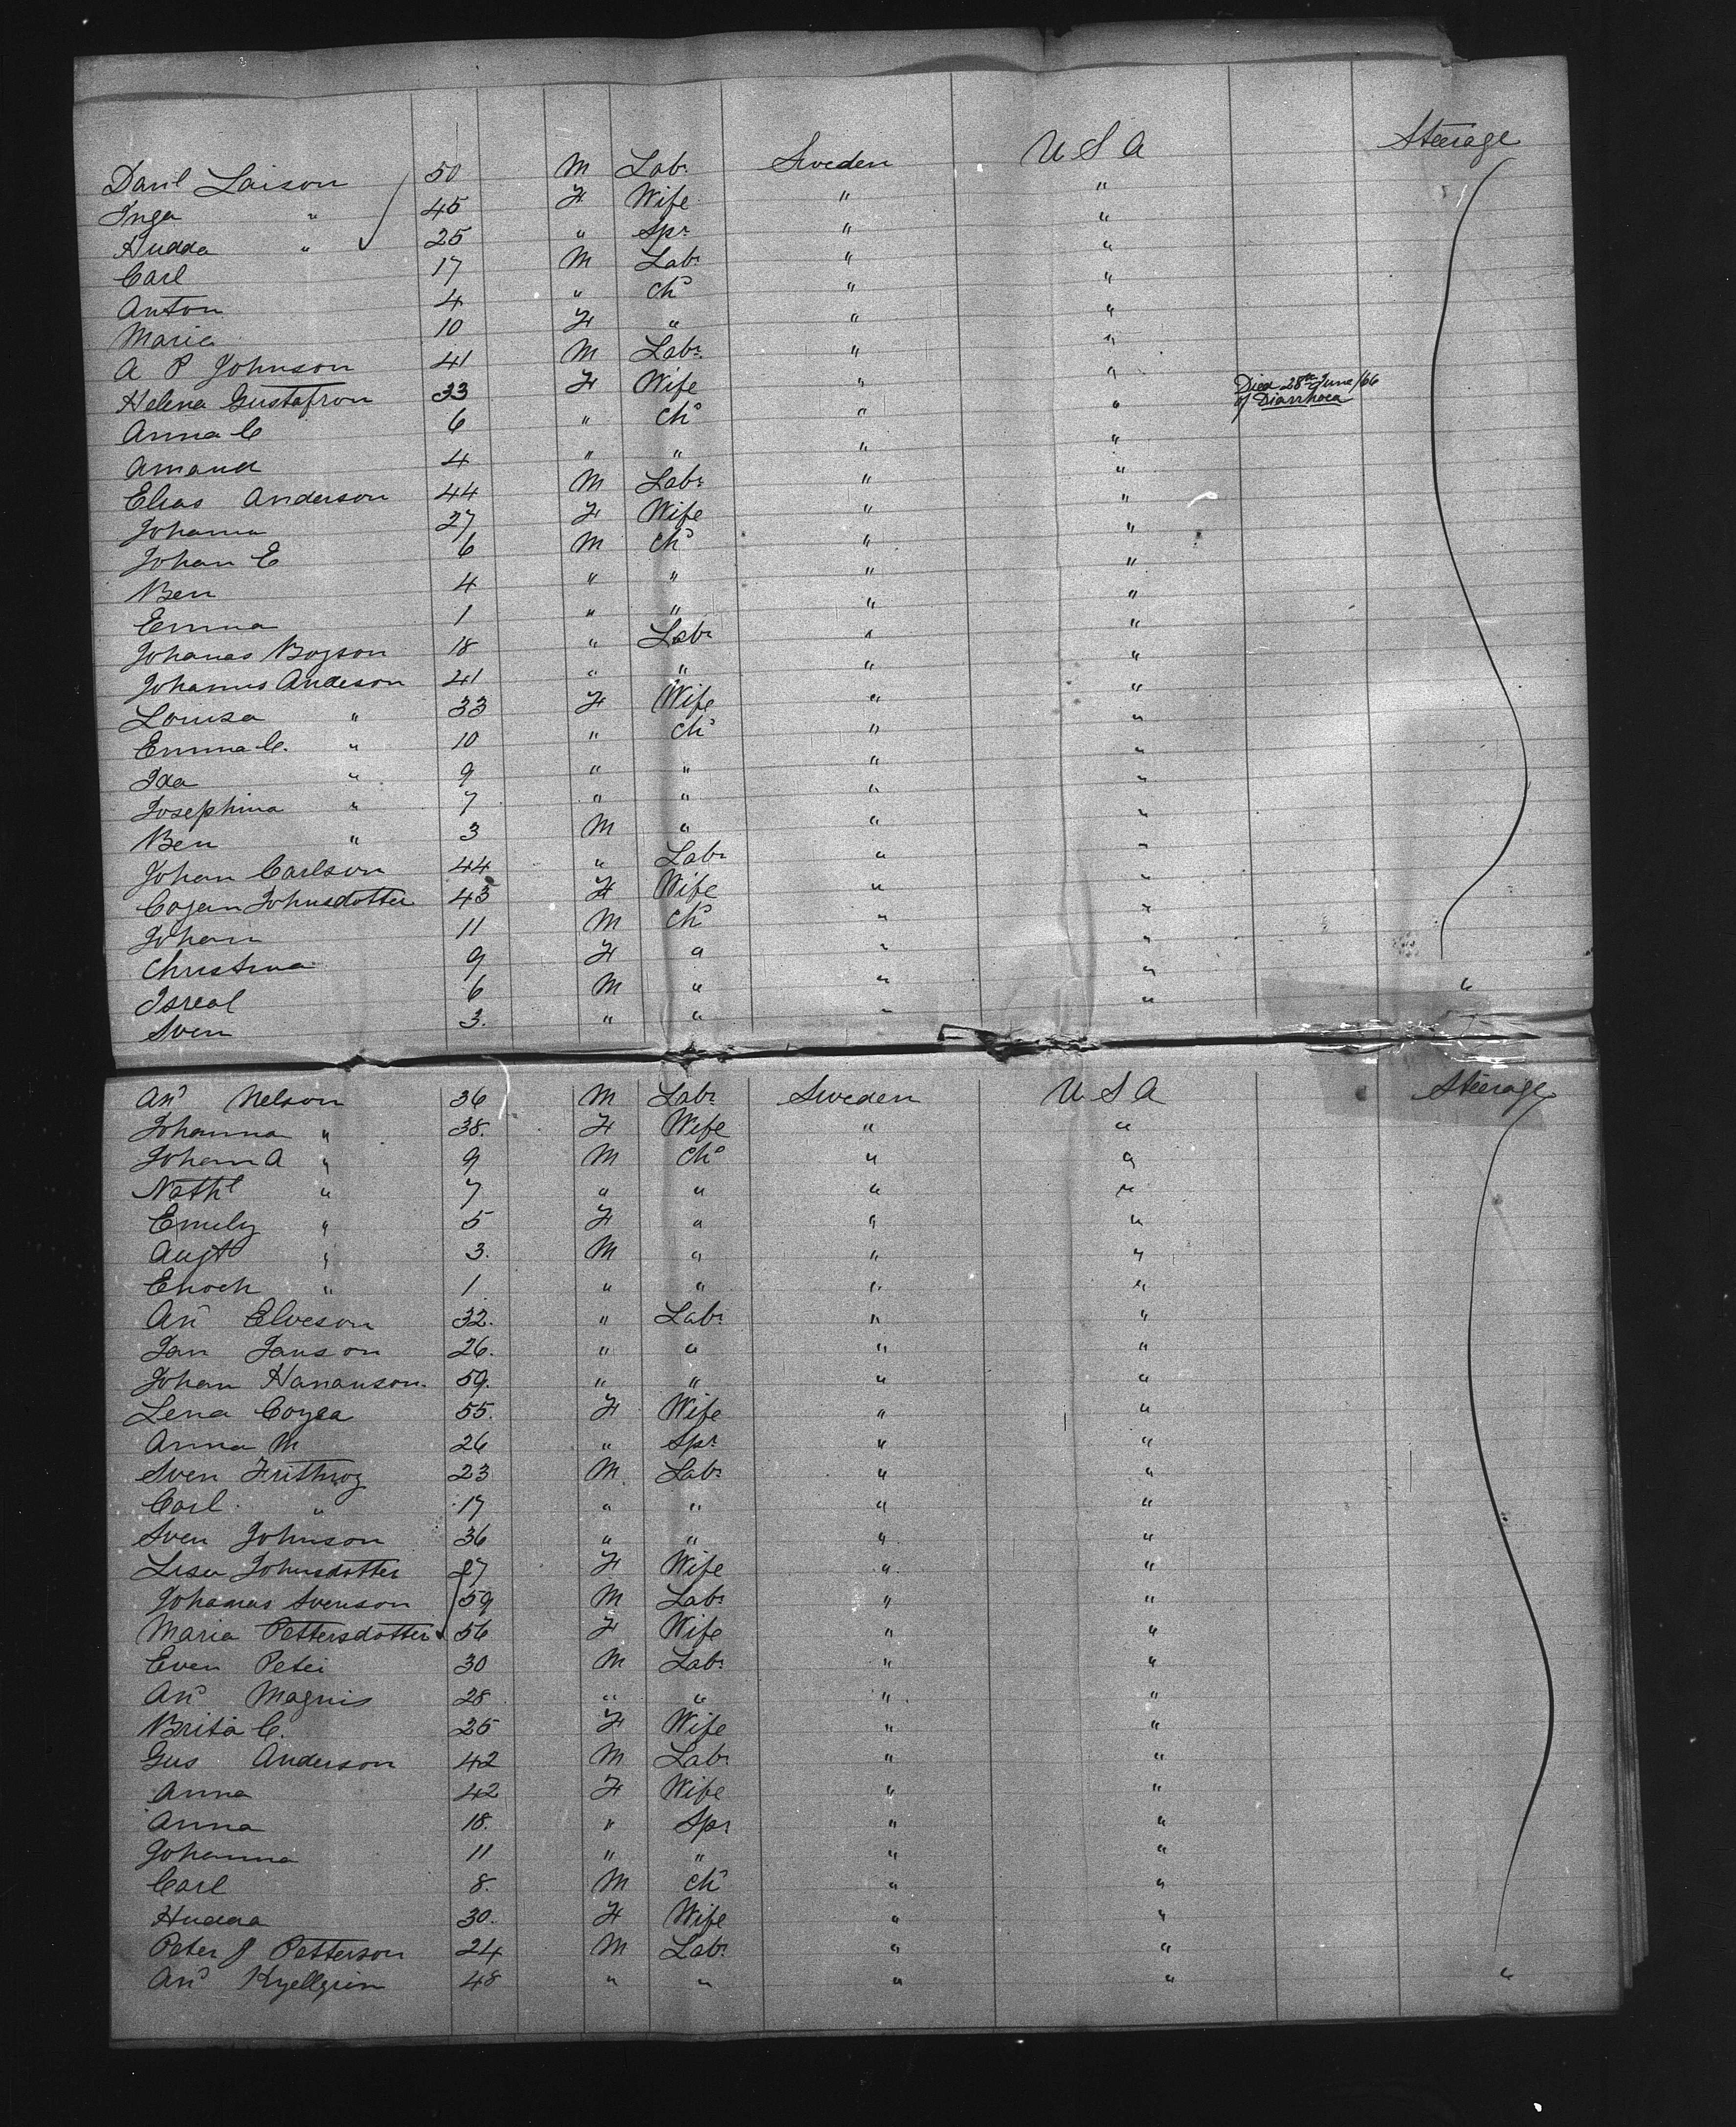 Danl Laison 50 M Labr Sweden U S A Steerage
Inga " 45 F Wife " "
Hudda " 25 " Spr " "
Carl 17 M Labr " "
Anton 4 " Chd " "
Maria 10 F " " "
A P Johnson 41 M Labr " "
Helena Gustafson 33 F Wife " " Died 28th June/66 of Diarrhoea
Anna C 6 " Chd " "
Amand 4 " " " "
Elias Anderson 44 M Labr " "
Johanna 27 F Wife " "
Johan E 6 M Chd " "
Ben 4 " " " "
Emma 1 " " " "
Johanas Bogson 18 " Labr " "
Johannis Andeson 41 " " " "
Louisa " 33 F Wife " "
Emma C. " 10 " Chd " "
Ida " 9 " " " "
Josephina " 7 " " " "
Ben " 3 M " " "
Johan Carlson 44 " Labr " "
Cajan Johnsdotter 43 F Wife " "
Johan 11 M Chd " "
Christina 9 F " " "
Isreal 6 M " " " "
Sven 3. " " " "
Ans Nelson 36 M Labr Sweden U S A Steerage
Johanna " 38. F Wife " "
Johan A " 9 M Chd " "
Nathl " 7 " " " "
Emily " 5 F " " "
Augt " 3. M " " "
Enoch " 1 " " " "
Ans Elveson 32. " Labr " "
Jan Janson 26. " " " "
Johan Hananson 59. " " " "
Lena Cogea 55. F Wife " "
Anna M 26 " Spr " "
Sven Frithrog 23 M Labr " "
Carl " 17 " " " "
Sven Johnson 36 " " " "
Lisa Johnsdotter 27 F Wife " "
Johanas Svenson 59 M Labr " "
Maria Pettersdotter 56 F Wife " "
Even Petei 30 M Labr " "
Ans Magnis 28 " " " "
Brita C. 25 F Wife " "
Gus Anderson 42 M Labr " "
Anna 42 F Wife " "
Anna 18. " Spr " "
Johanna 11 " " " "
Carl 8. M Chd " "
Hudda 30. F Wife " "
Peter J Petterson 24 M Labr " "
Ans Kyellgrin 48 " " " " "